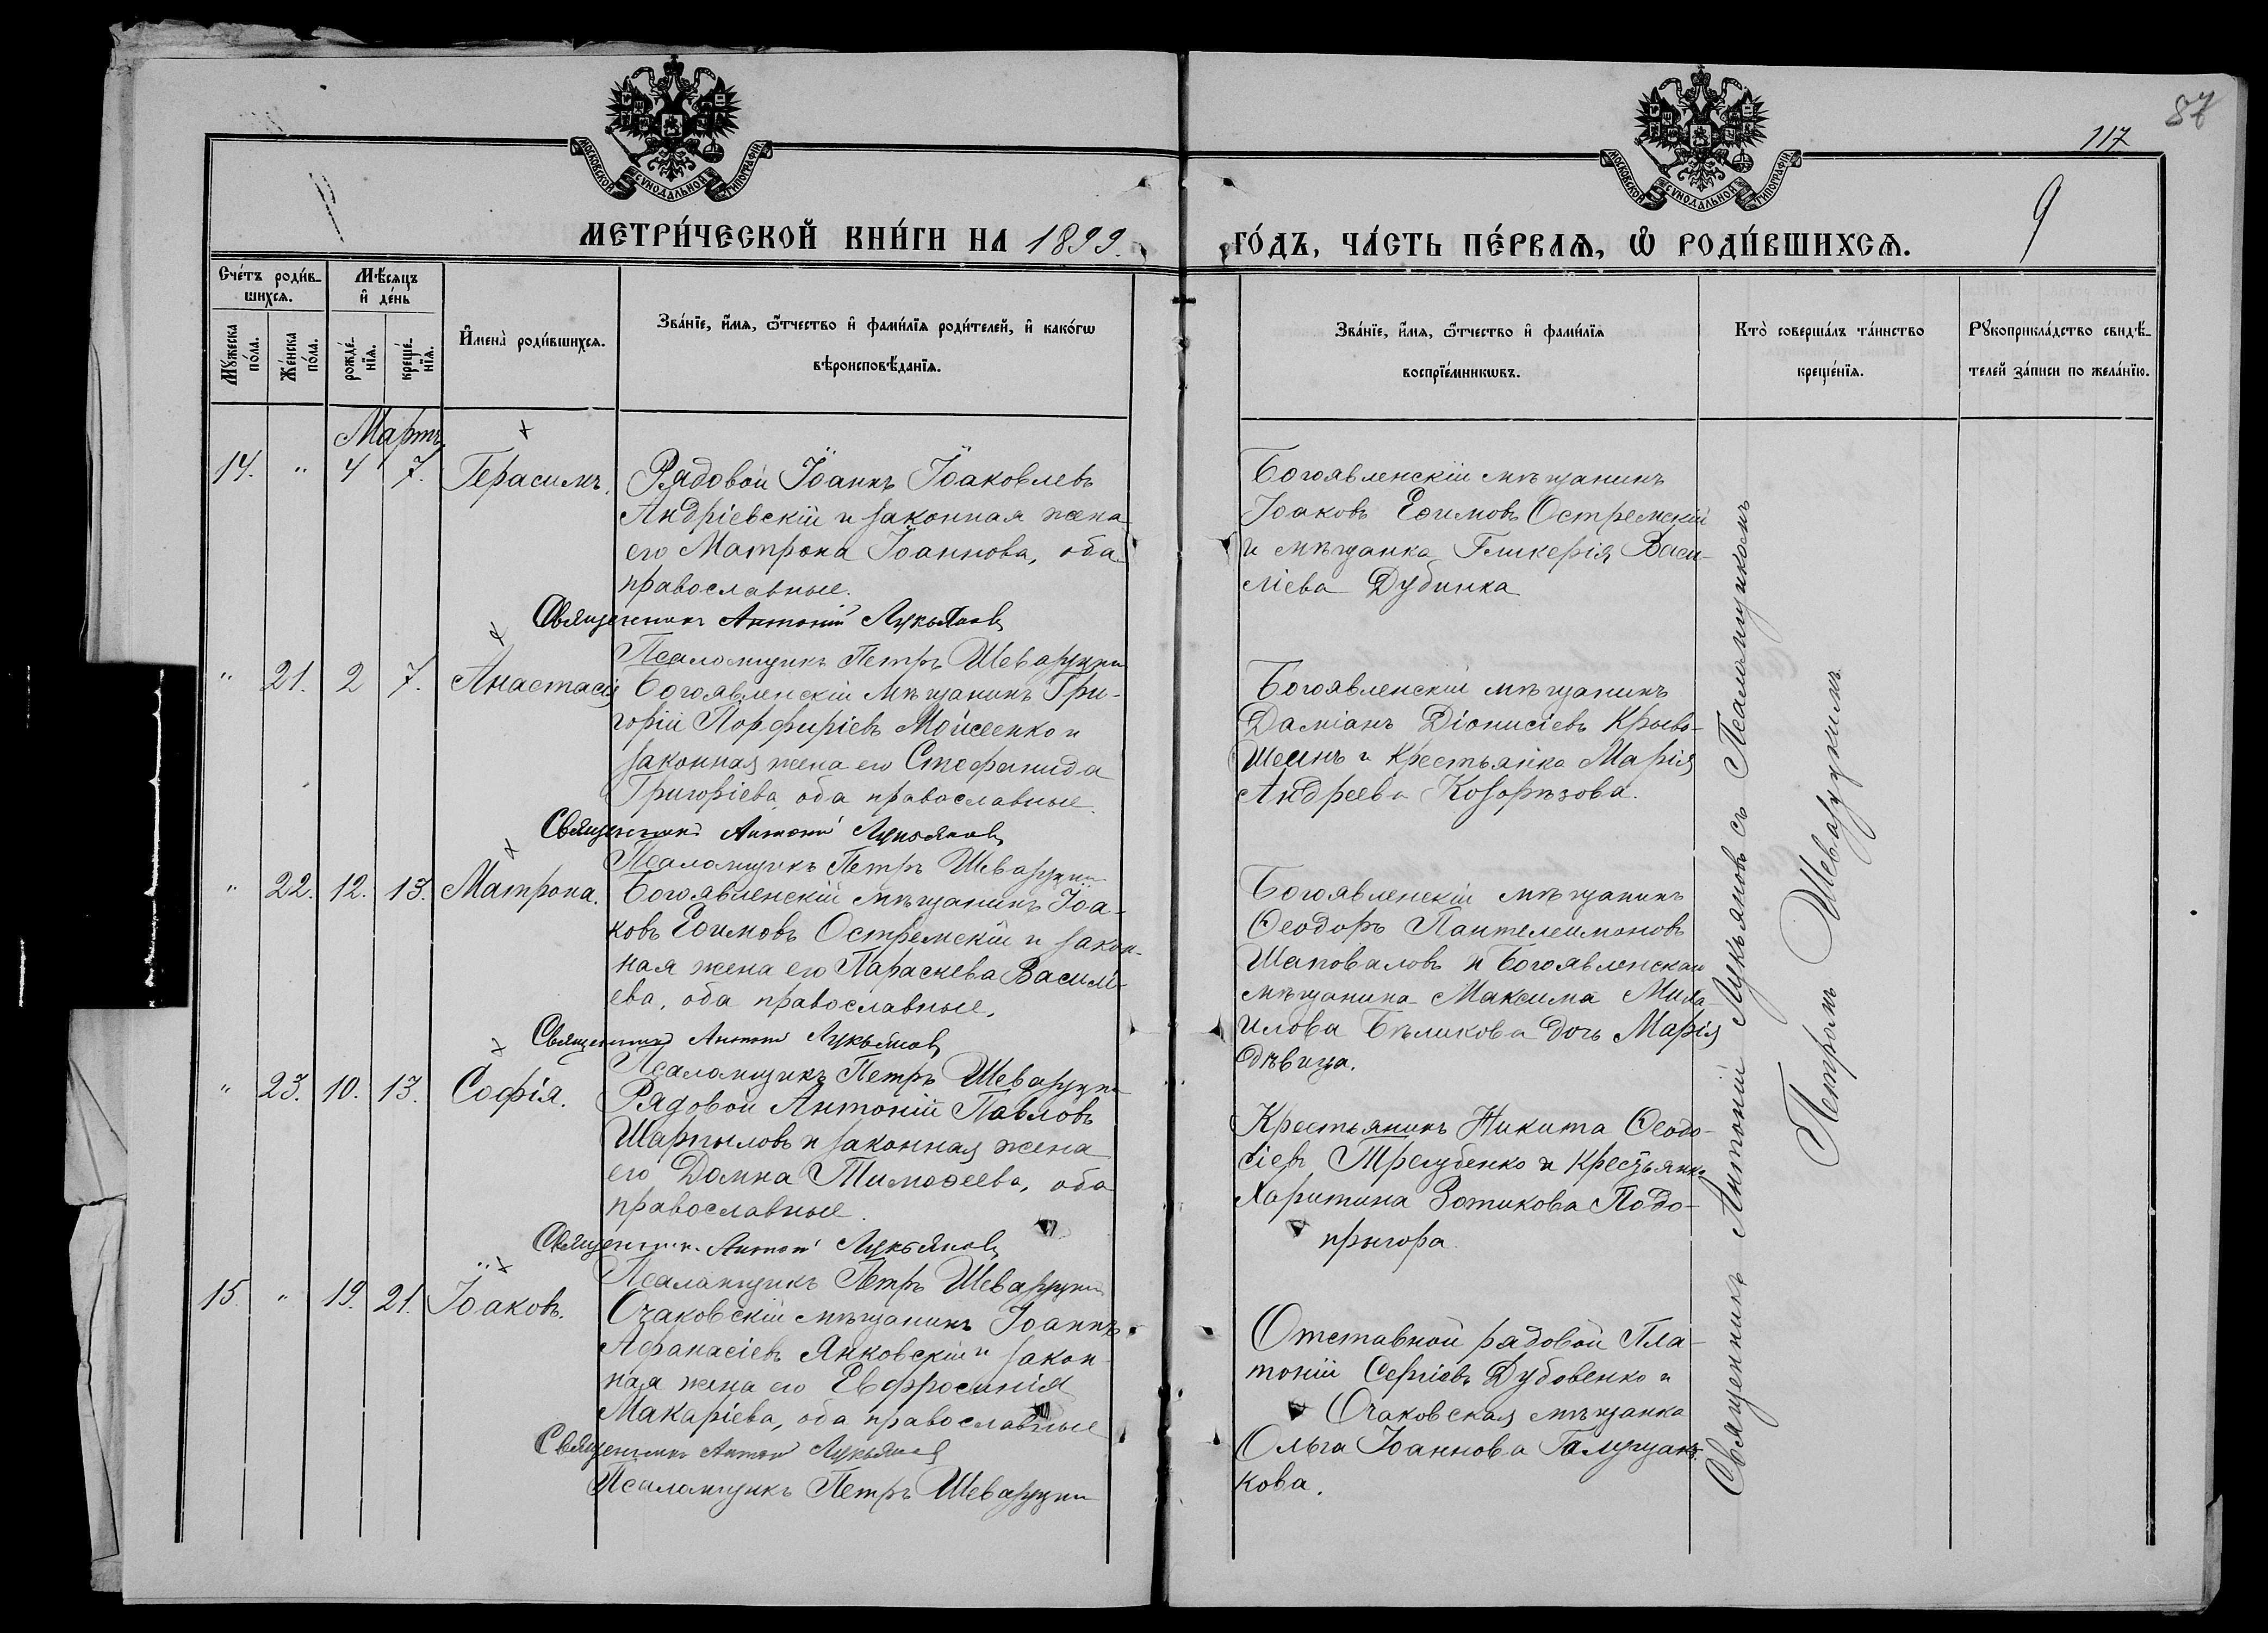 87
117
9
МОСКОВСКОЙ СУНОДАЛЬНОЙ ТИПОГРАФІИ
МОСКОВСКОЙ СУНОДАЛЬНОЙ ТИПОГРАФІИ
МЕТРИ́ЧЕСКОЙ КНИ́ГИ НА 1899. ГО́ДЪ, ЧА́СТЬ ПЕ́РВАѦ, Ѿ РОДИ́ВШИХСѦ.
Сче́тъ роди́в-
шихсѧ.
Мꙋ́жеска
по́ла.
Же́нска
по́ла.
Мѣ́сѧцъ
и҆ де́нь
рожде́-
нїѧ.
креще́-
нїѧ.
И҆мена̀ роди́вшихсѧ.
Зва́нїе, и҆́мѧ, ѻ҆́тчество и҆ фами́лїѧ роди́телей, и҆ како́гѡ
вѣроисповѣ́данїѧ.
Зва́нїе, и҆́мѧ, ѻ҆́тчество и҆ фами́лїѧ
воспрїе́мникѡвъ.
Кто̀ соверша́лъ та́инство
креще́нїѧ.
Рꙋкоприкла́дство свидѣ́-
телей за́писи по жела́нїю.
Мартъ.
14. " 4 7. Герасимъ.
Рядовой Іоаннъ Іоаковлевъ
Андріевскій и законная жена
его Матрона Іоаннова, оба
православные.
Священникъ Антоній Лукьяновъ
Псаломщикъ Петръ Шевазуцки
Богоявленскій мѣщанинъ
Іоаковъ Еѳимовъ Остремскій
и мѣщанка Гликерія Васи-
ліева Дубинка
" 21. 2 7. Анастасія
Богоявленскій мѣщанинъ Гри-
горій Порфиріевъ Мойсеенко и
законная жена его Стефанида
Григоріева, оба православные.
Священникъ Антоній Лукьяновъ
Псаломщикъ Петръ Шевазуцки
Богоявленскій мѣщанинъ
Даміанъ Діонисіевъ Криво-
шеинъ и крестьянка Марія
Андреева Козорѣзова.
" 22. 12. 13. Матрона.
Богоявленскій мѣщанинъ Іоа-
ковъ Еѳимовъ Остремскій и закон-
ная жена его Параскева Василі-
ева, оба православные.
Священникъ Антоній Лукьяновъ
Псаломщикъ Петръ Шевазуцки
Богоявленскій мѣщанинъ
Ѳеодоръ Пантелеимоновъ
Шаповаловъ и Богоявленскаго
мѣщанина Максима Миха-
илова Бѣликова дочь Марія
дѣвица.
" 23. 10. 13. Софія.
Рядовой Антоній Павловъ
Шарпыловъ и законная жена
его Домна Тимоѳеева, оба
православные.
Священникъ Антоній Лукьяновъ
Псаломщикъ Петръ Шевазуцки
Крестьянинъ Никита Ѳеодо-
сіевъ Трегубенко и крестьянка
Харитина Зотикова Подо-
пригора
15. " 19. 21. Іоаковъ.
Очаковскій мѣщанинъ Іоаннъ
Аѳанасіевъ Янковскій и закон-
ная жена его Евфросинія
Макаріева, оба православные
Священникъ Антоній Лукьяновъ
Псаломщикъ Петръ Шевазуцки
Отставной рядовой Пла-
тоній Сергіевъ Дубовенко и
Очаковская мѣщанка
Ольга Іоаннова
кова.
Священникъ Антоній Лукьяновъ съ Псаломщикомъ
Петромъ Шевазуцкимъ.